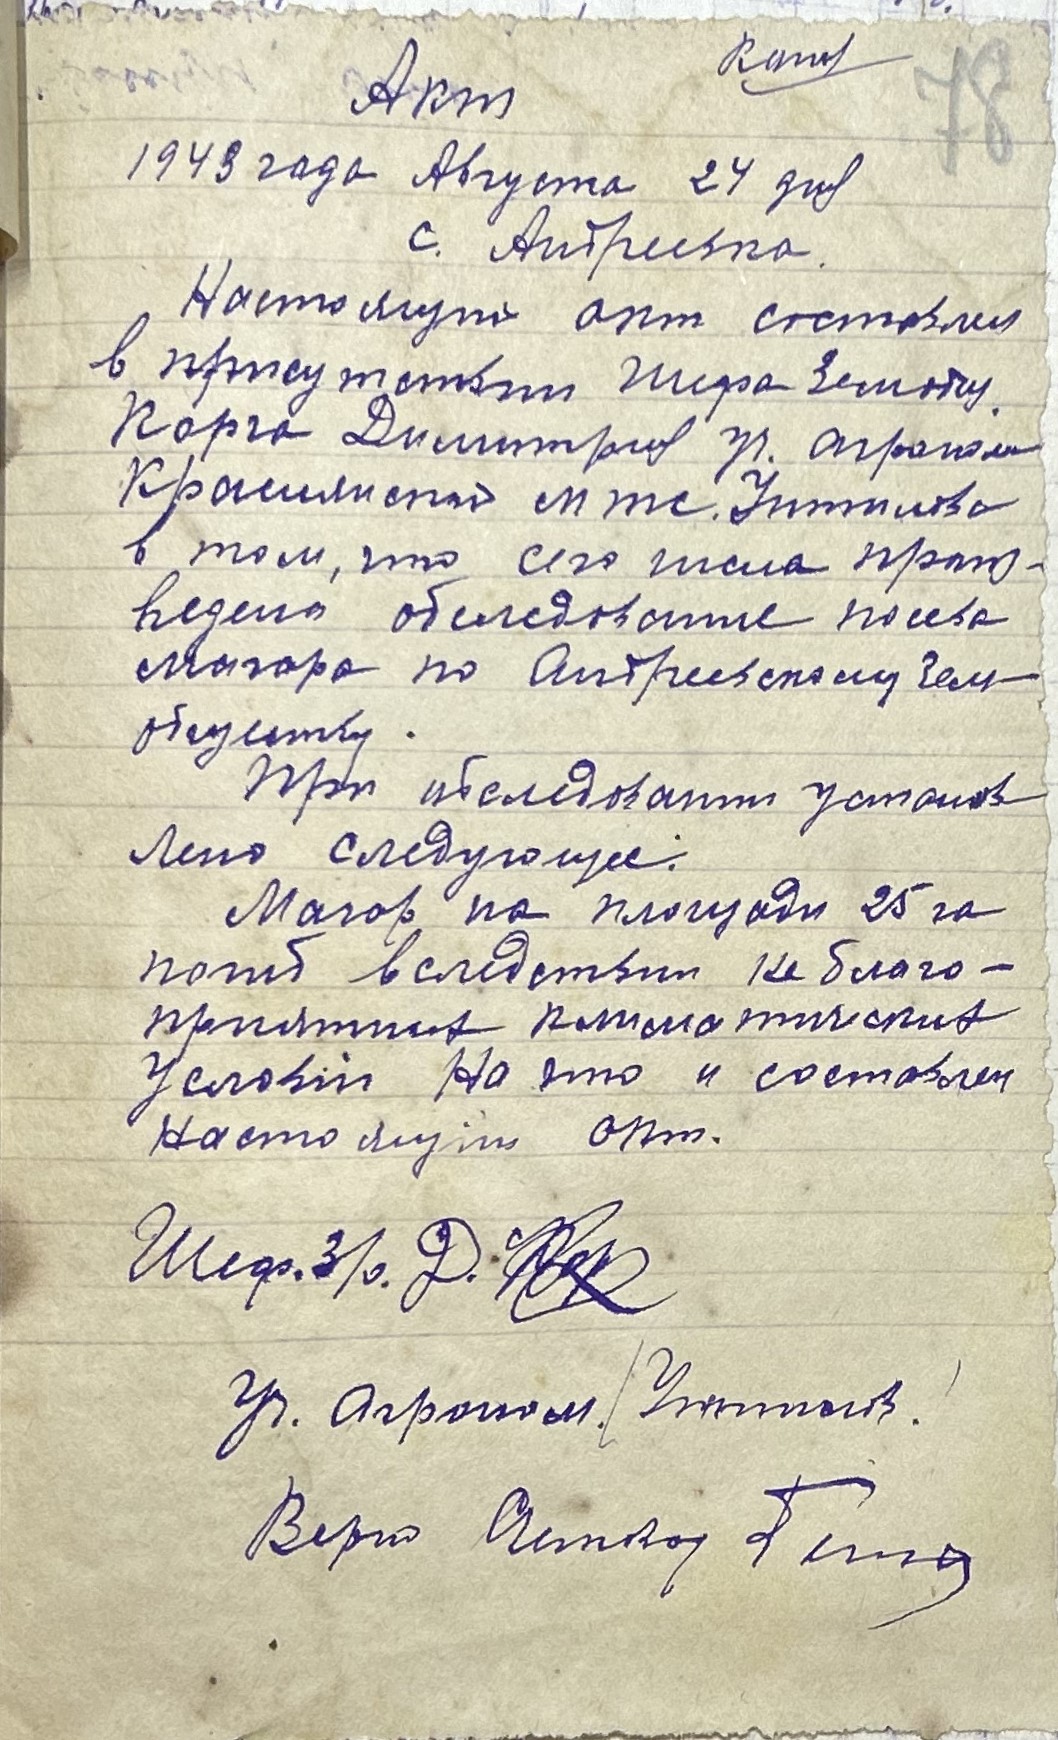 Копия
87
Акт
1943 года Августа 24 дня
с. Андреевка.
Настоящий акт составлен
в присутствии Шефа Земобщ.
Карга Димитрия уч. агронома
Красненской МТС.
в том, что сего числа произ-
ведена обследование посева
магара по Андреевскому Зем-
обществу.
При обследовании установ
лено следующее:
Магар на площади 25 га
погиб вследствии не благо-
приятных климатических
Условий На что и составлен
Настоящий акт.
Шеф. З/о. Д.
Уч. Агроном.
Верно Счетовод